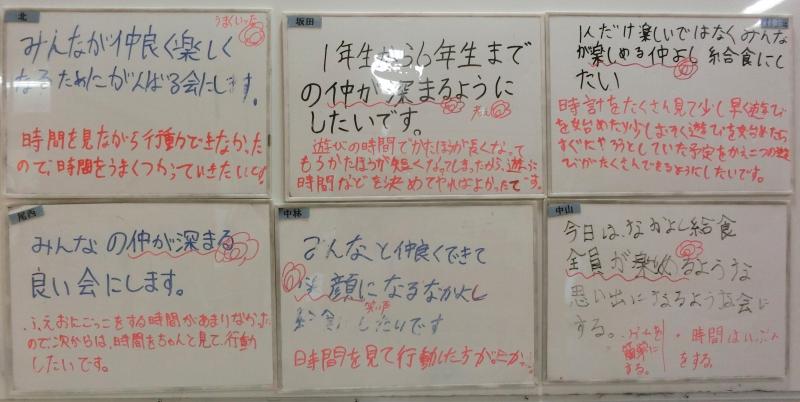 北
うまくいった
みんなが仲良く楽しく
なるためにがんばる会にします。
時間を見ながら行動できなかった
ので、時間をうまくつかっていきたいです
坂田
1年生から6年生まで
の仲が深まるように
したいです。
遊びの時間でかたほうが長くなって
もうかたほうが短くなってしまったから、遊ぶ
時間などを決めてやればよかったです。
1人だけ楽しいではなくみんな
が楽しめる仲よし給食にし
たい
時計をたくさん見て少し早く遊び
を始めたり少しおそく遊びを始めたら
すぐにやろうとしていた予定をかえ二つの遊
びがたくさんできるようにしたいです。
尾西
みんなの仲が深まる
良い会にします。
ふえおにごっこをする時間があまりなかった
ので次からは、時間をちゃんと見て、行動
したいです。
中林
みんなと仲良くできて
笑顔になるなかよし
給食にしたいです
時間を見て行動した方がよかった
中山
今日は、なかよし給食
全員が楽しめるような
思い出になるような会に
する。
・ゲームを
簡単に
する。
・時間は
をする。